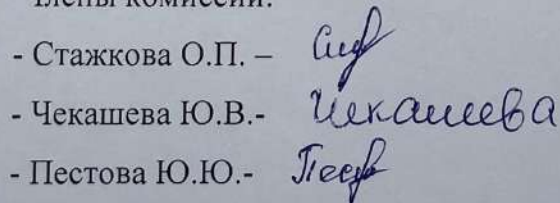 члены комиссии:
- Стажкова О.П. –
- Чекашева Ю.В.- Чекашева
- Пестова Ю.Ю.-